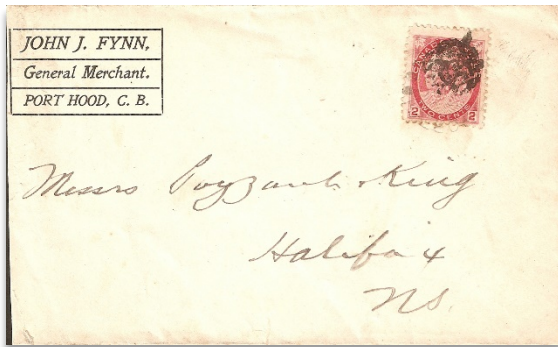 JOHN J. FYNN,
General Merchant.
PORT HOOD, C. B.
CANADA
2 TWO CENTS 2
Messrs Payzant & King
Halifax
NS.